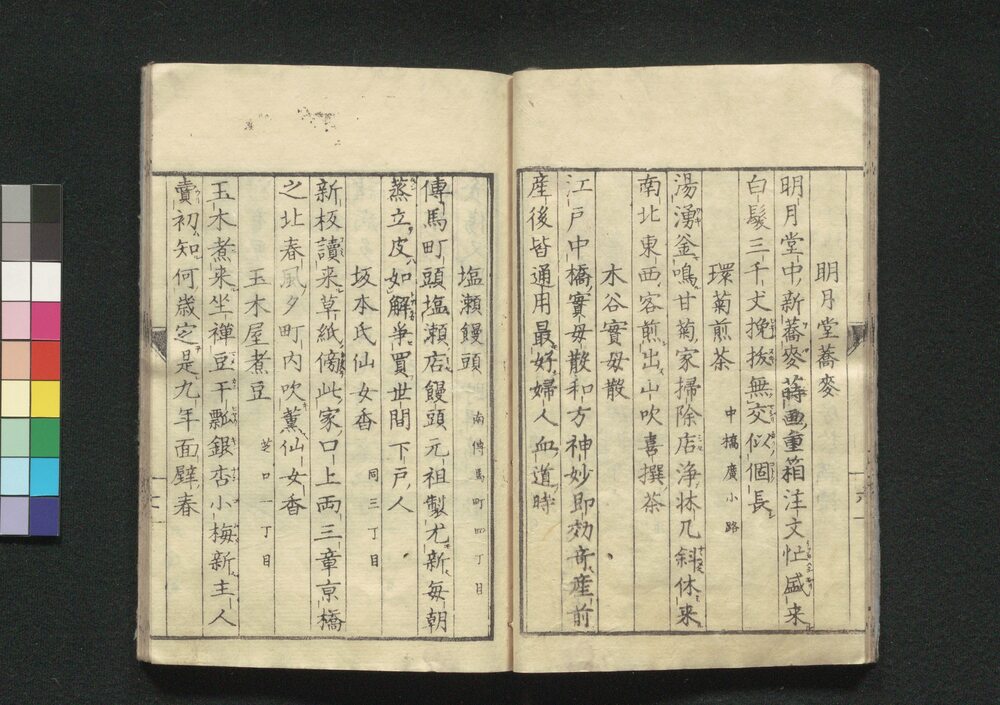 明月堂蕎麥
明月堂中新蕎麥蒔画重箱注文忙盛来
白髮三千丈挽抜無交似個長
環菊煎茶
中橋廣小路
湯湧釜鳴甘菊家掃除店浄牀几斜休来
南北東西客煎出山吹喜撰茶
木谷實母散
江戸中橋實母散和方神妙即効竒産前
産後皆通用最好婦人血道時
塩瀬饅頭
南傳馬町四丁目
傳馬町頭塩瀬店饅頭元祖製尤新毎朝
蒸立皮如解爭買世間下戸人
坂本氏仙女香
同三丁目
新板讀来草紙傍此家口上両三章京橋
之北春風夕町内吹薫仙女香
玉木屋煮豆
芝口一丁目
玉木煮来坐禅豆干瓢銀杏小梅新主人
賣初知何歳定是九年面壁春